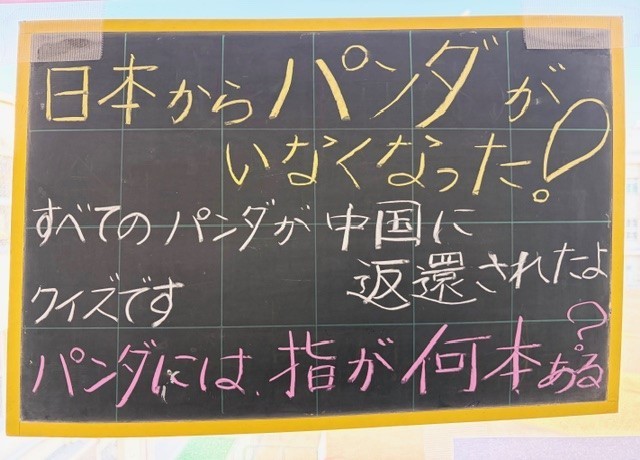 日本からパンダが
いなくなった!
すべてのパンダが中国に
返還されたよ
クイズです
パンダには、指が何本ある?